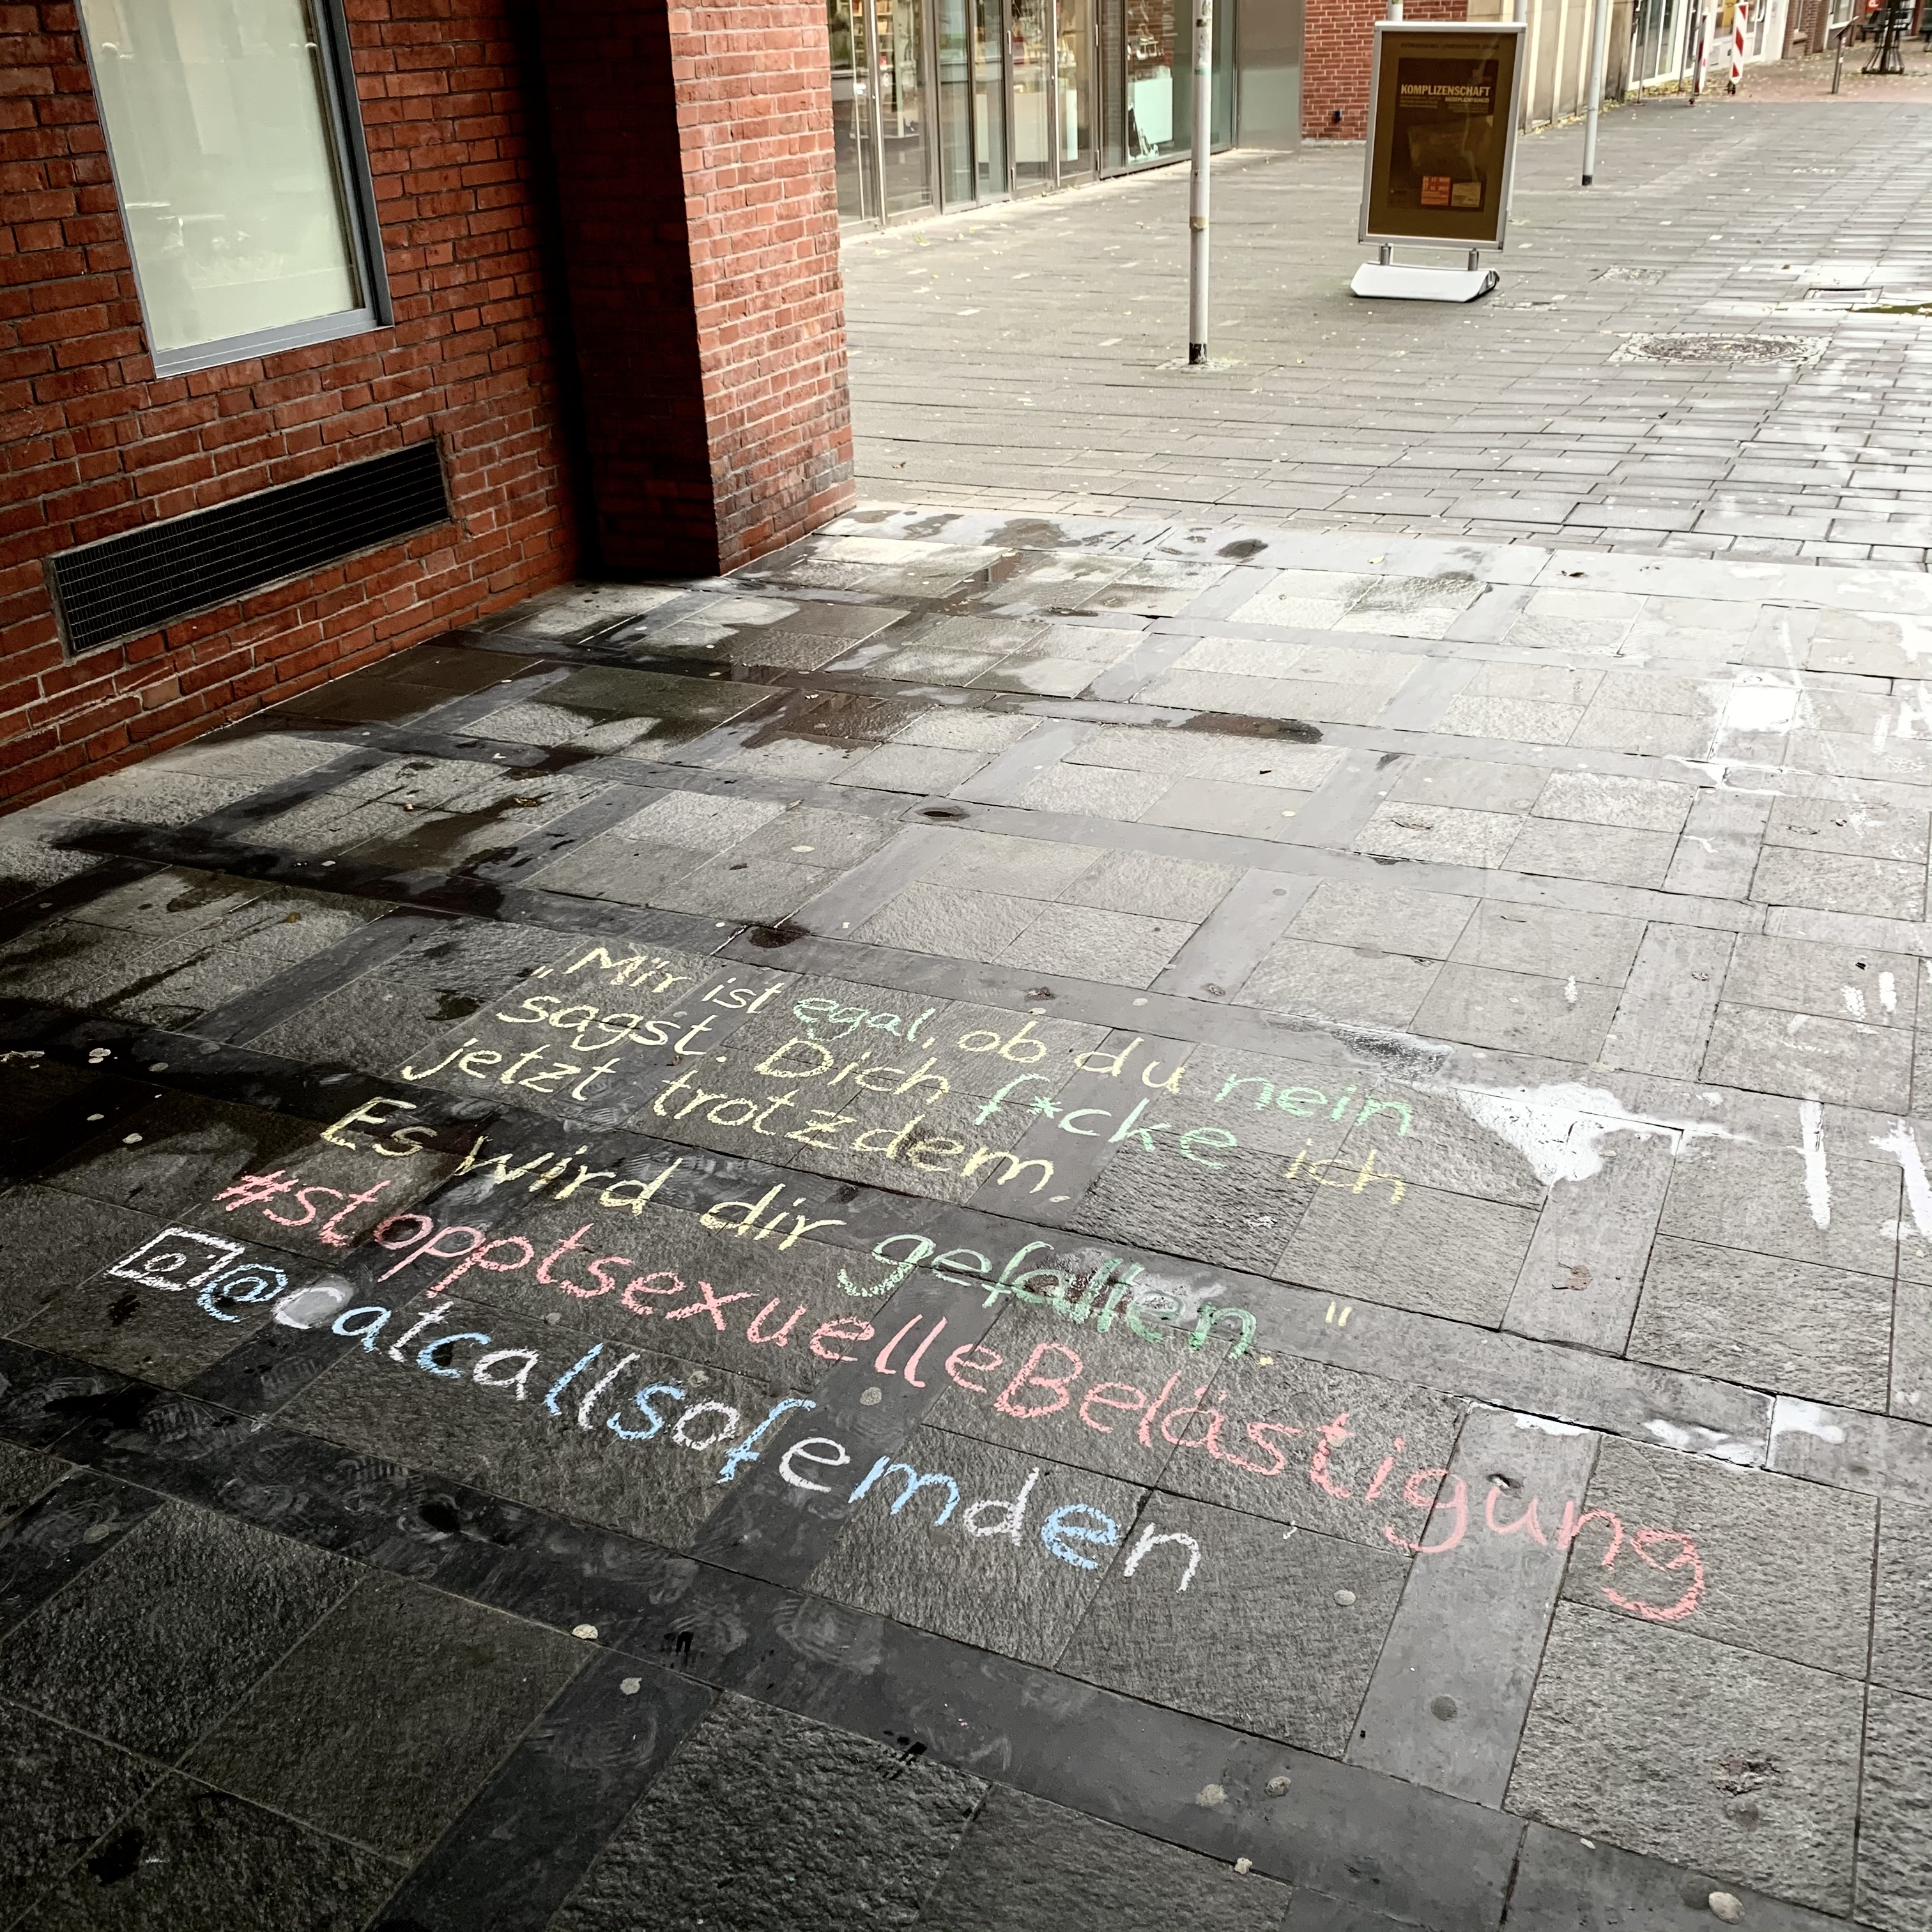 KOMPLIZENSCHAFT
„Mir ist egal, ob du nein
sagst. Dich f*cke ich
jetzt trotzdem.
Es wird dir gefallen."
#stopptsexuelleBelästigung
@catcallsofemden